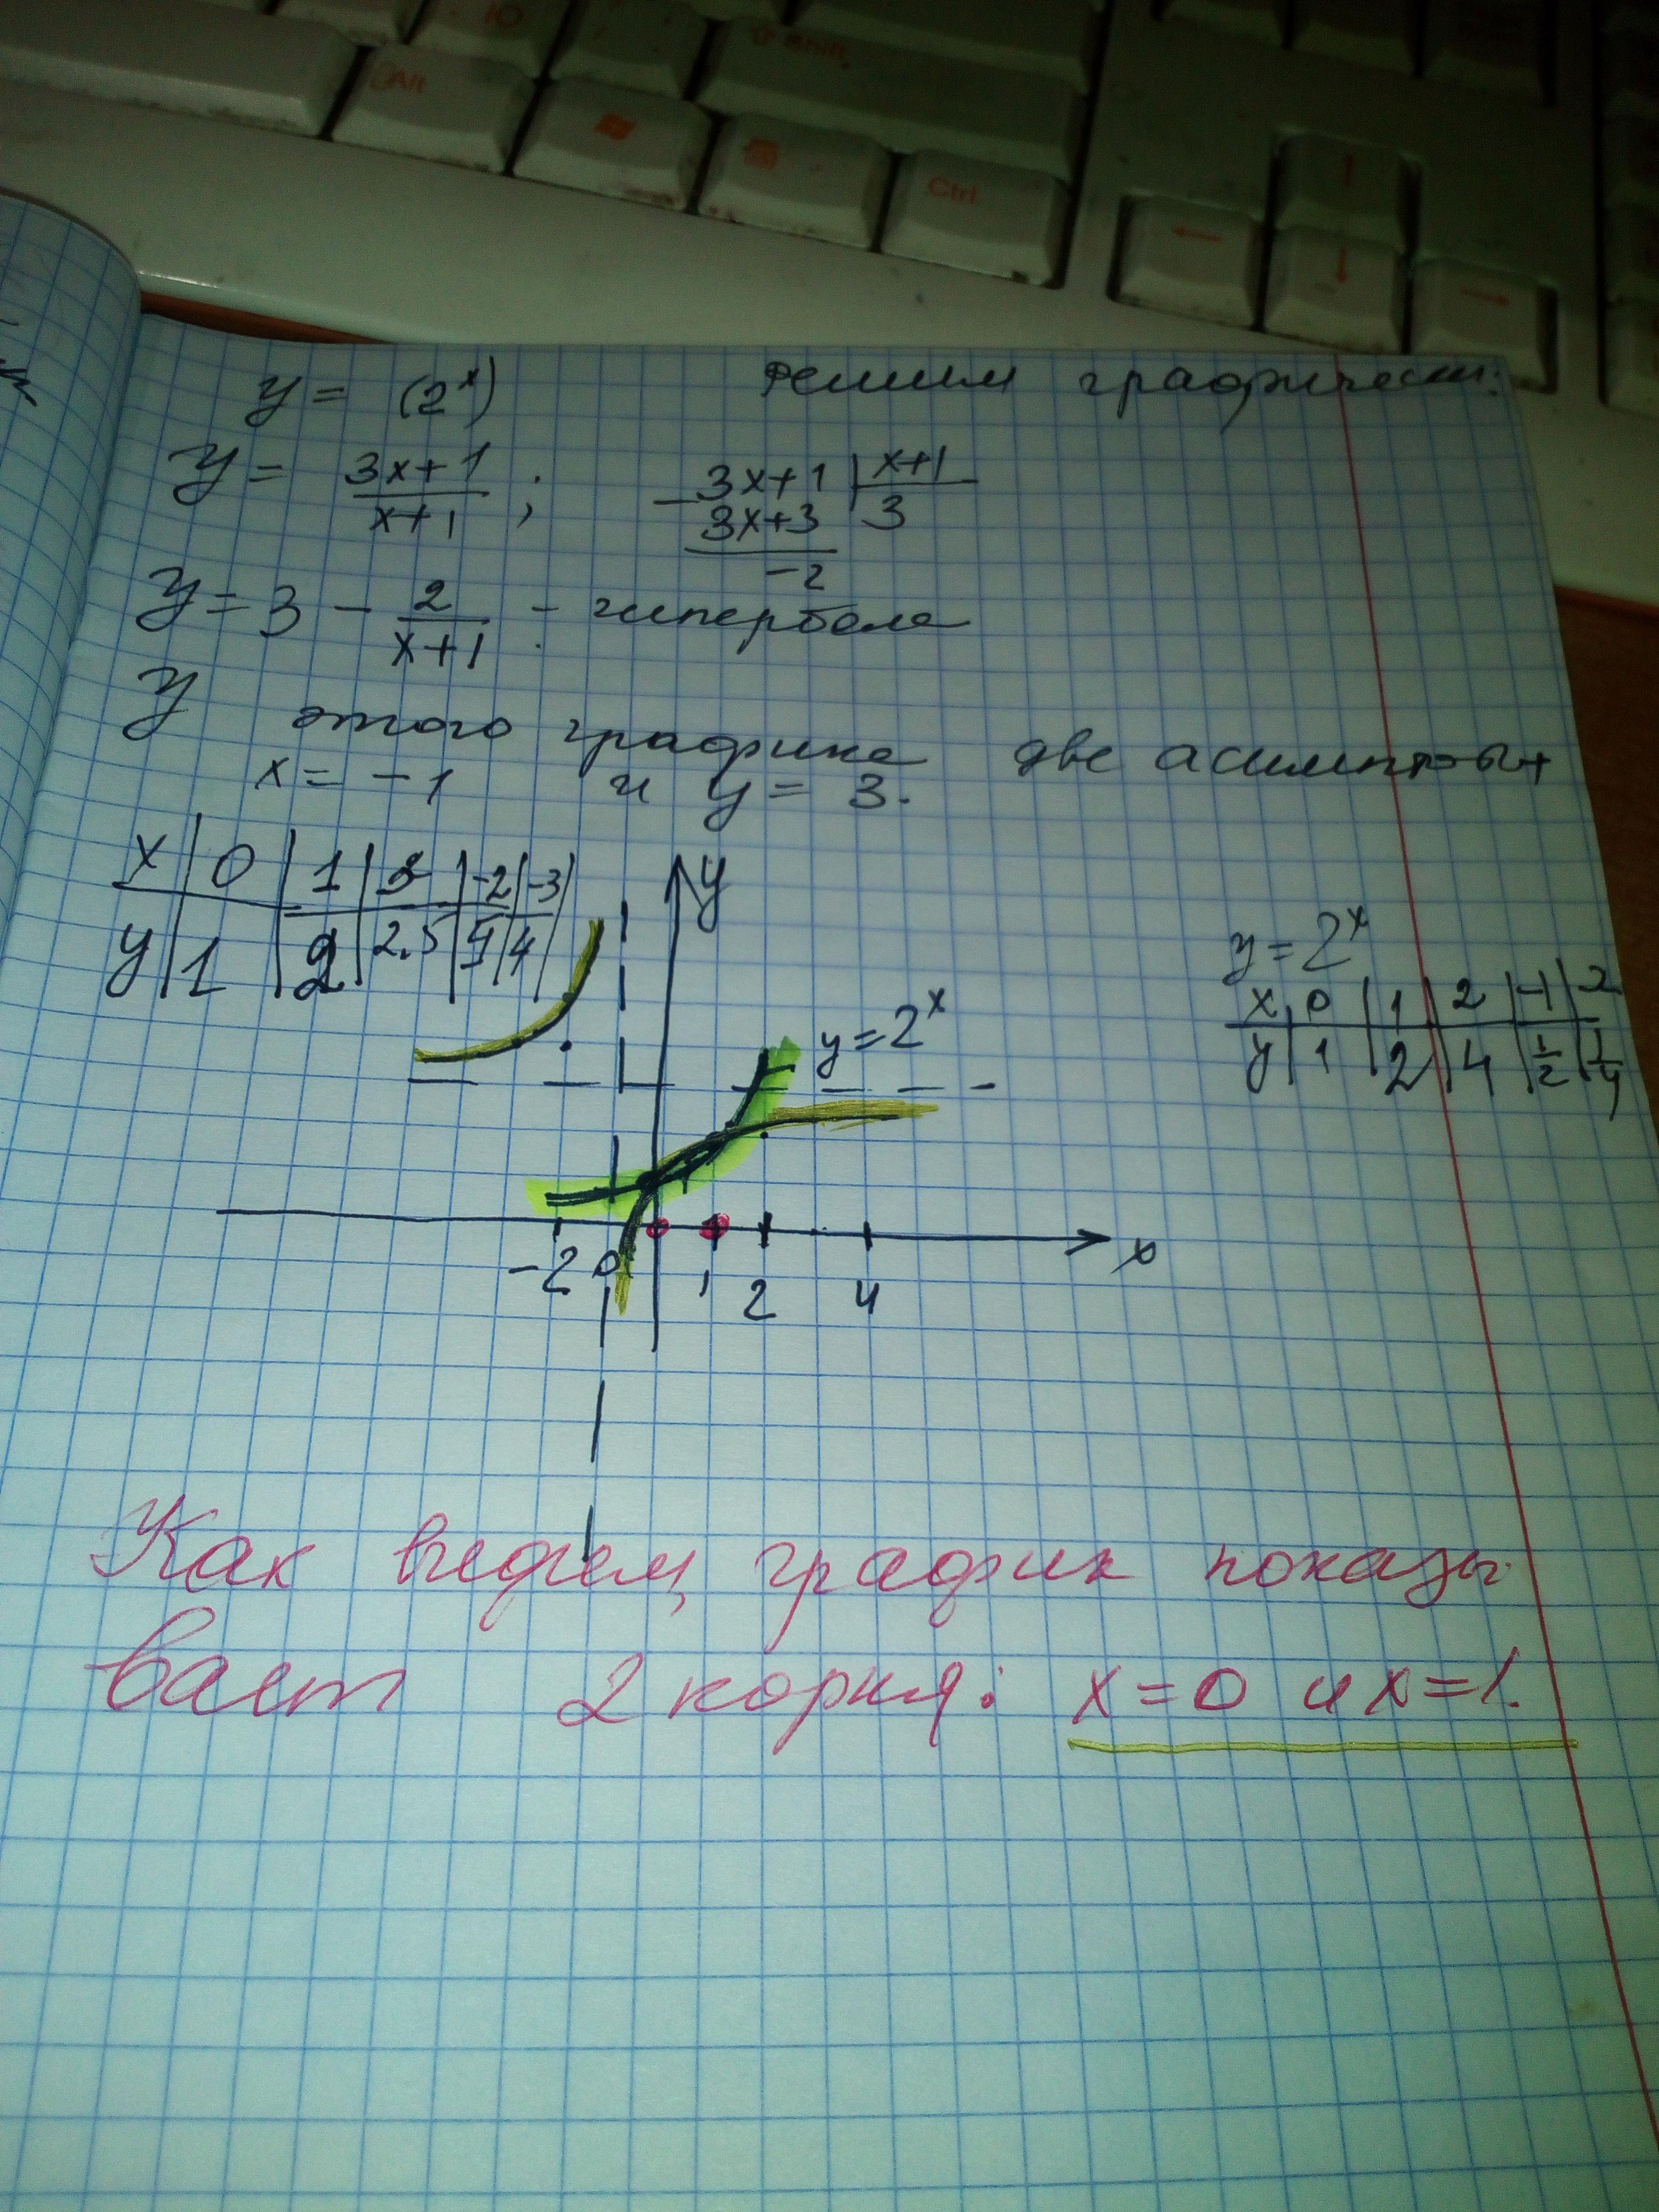 Ю
Alt
Shift
Ctrl
y = (2^x) Решим графически:
y = (3x+1)/(x+1) ; - 3x+1 | x+1
3x+3 | 3
-2
y = 3 - 2/(x+1) - гипербола
У этого графика две асимптоты
x = -1 и y = 3.
x | 0 | 1 | 3 | -2 | -3
y | 1 | 2 | 2,5 | 5 | 4
y
y = 2^x
x | 0 | 1 | 2 | -1 | -2
y | 1 | 2 | 4 | 1/2 | 1/4
y = 2^x
-2 0 1 2 4 x
Как видем, график показы
вает 2 корня: x = 0 и x = 1.